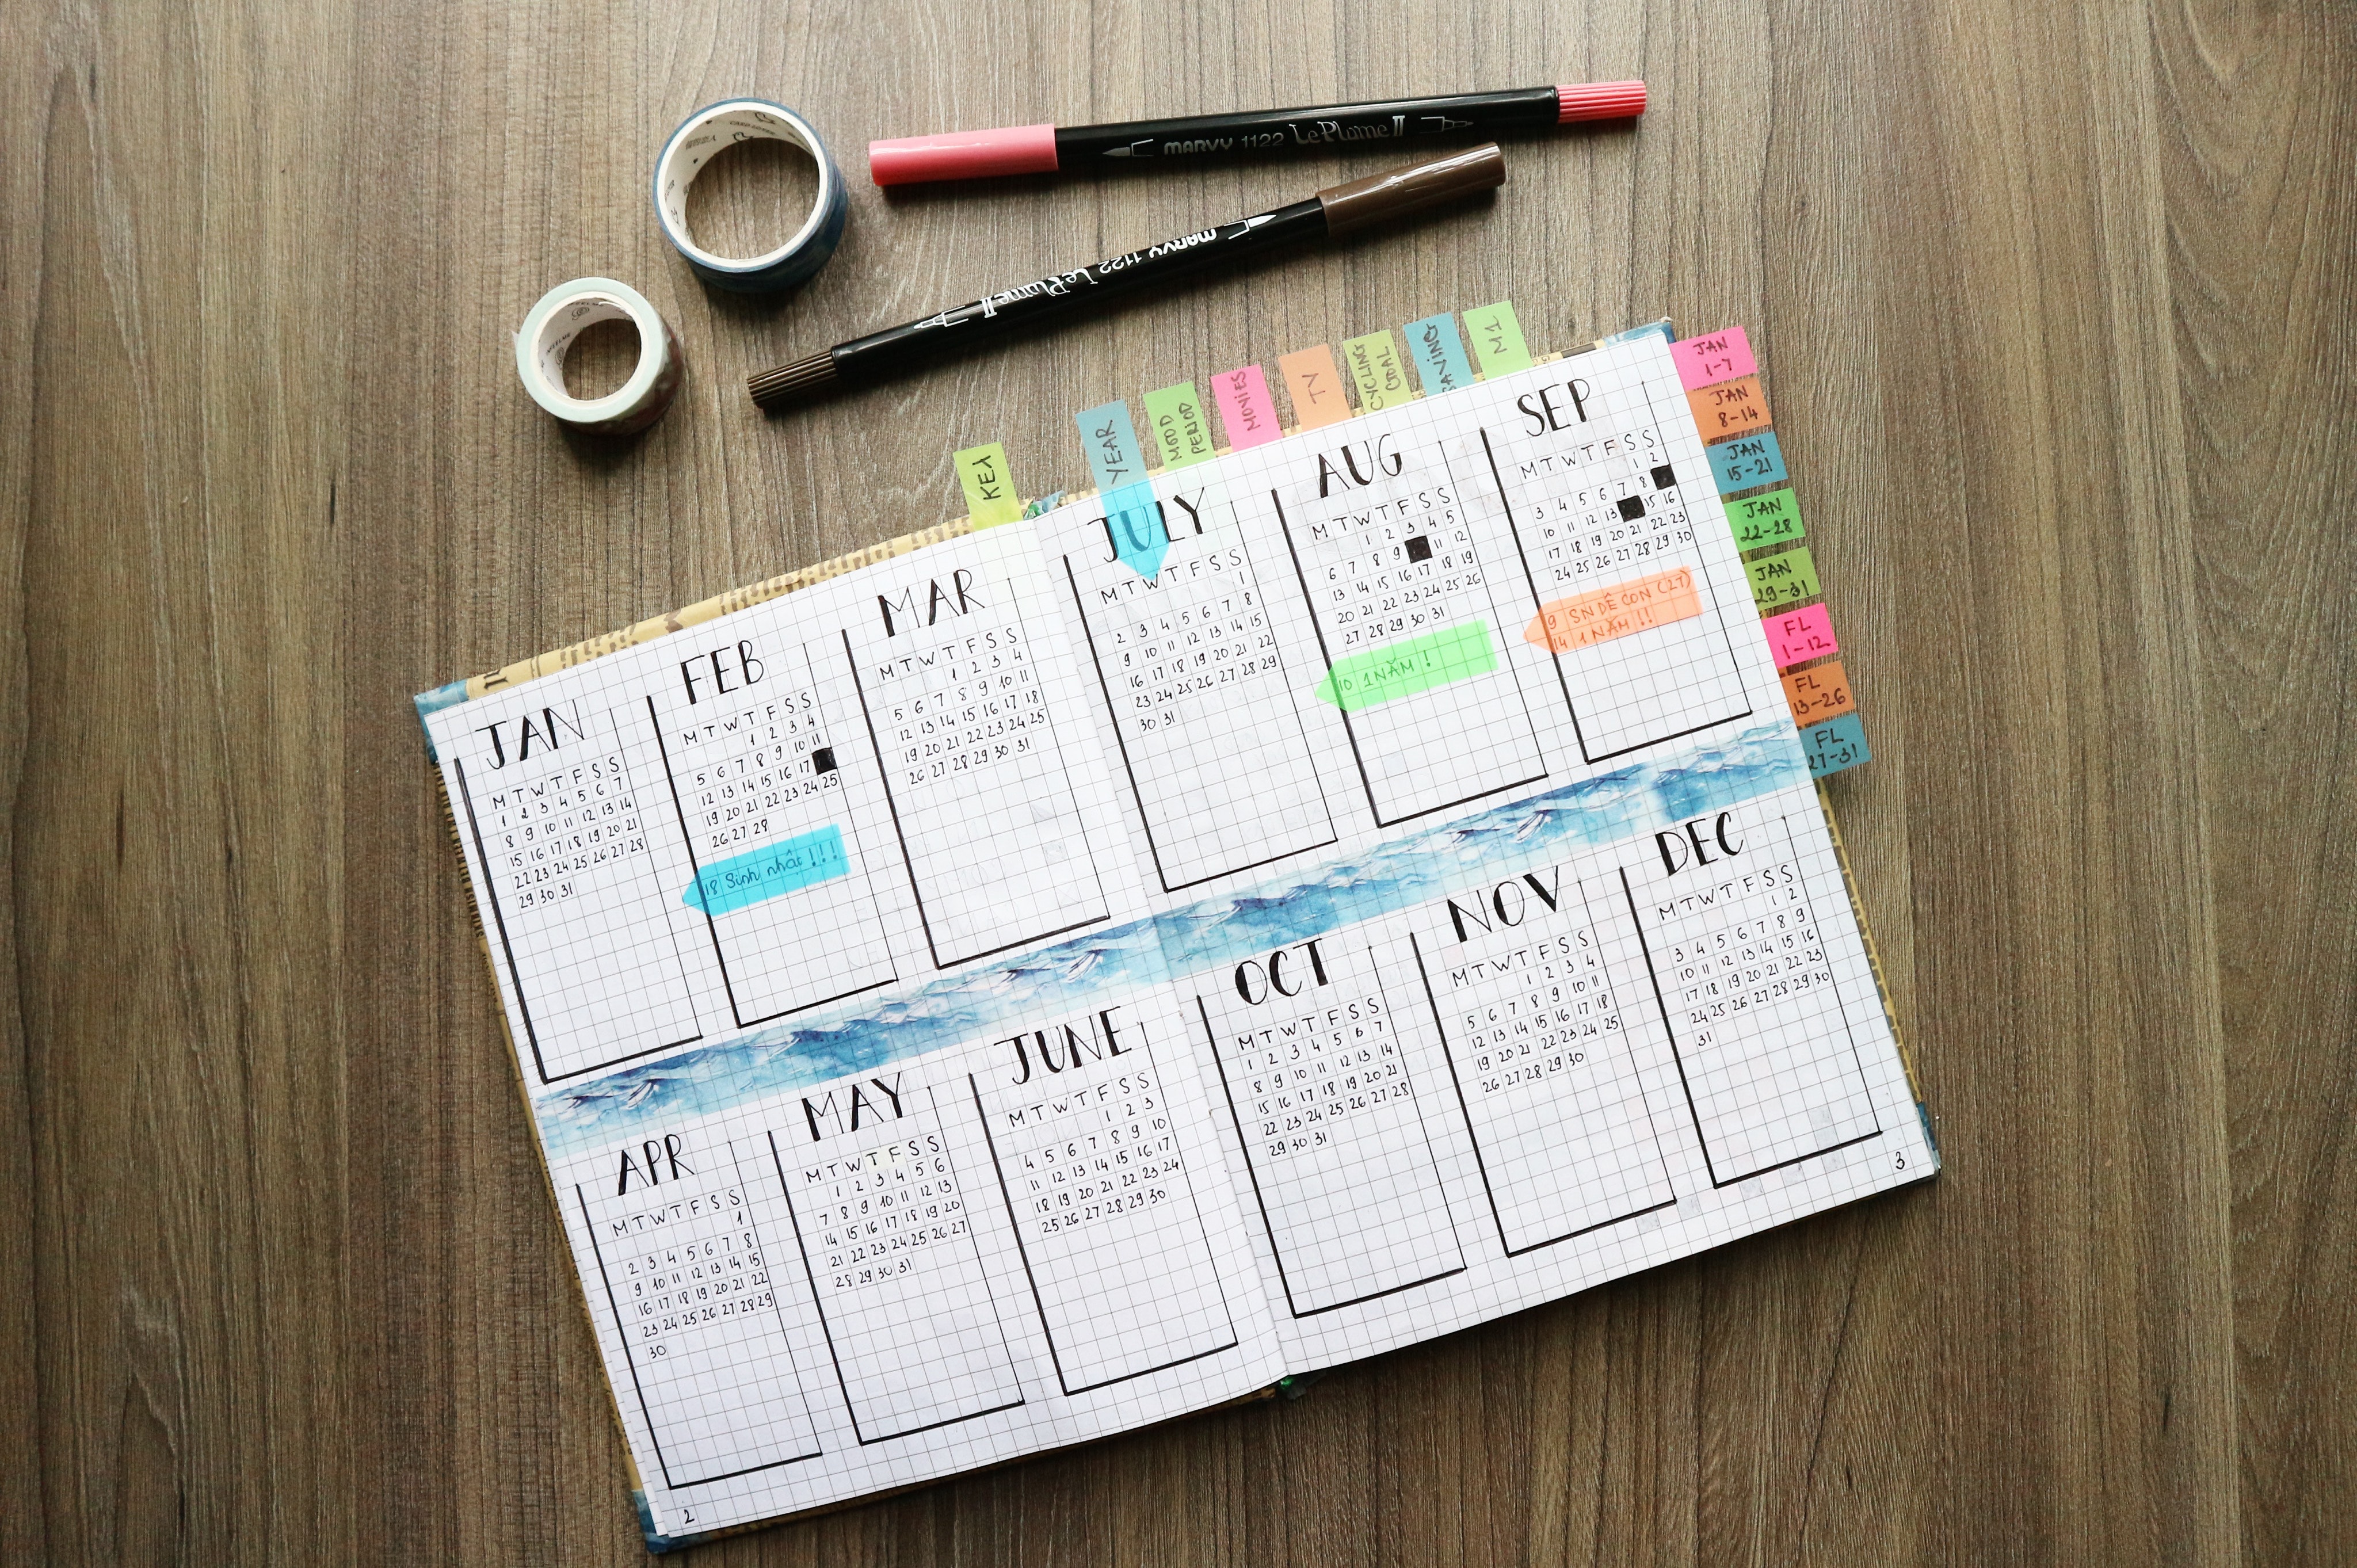 MARVY 1122 Le Plume II
MARVY 1122 Le Plume II
KEY
YEAR
MOOD
PERIOD
MOVIES
TV
CYCLING
GOAL
SAVING
M1
JAN
1-7
JAN
8-14
JAN
15-21
JAN
22-28
JAN
29-31
FL
1-12
FL
13-26
FL
27-31
JAN
M T W T F S S
1 2 3 4 5 6 7
8 9 10 11 12 13 14
15 16 17 18 19 20 21
22 23 24 25 26 27 28
29 30 31
FEB
M T W T F S S
1 2 3 4
5 6 7 8 9 10 11
12 13 14 15 16 17
19 20 21 22 23 24 25
26 27 28
18 Sinh nhật !!!
MAR
M T W T F S S
1 2 3 4
5 6 7 8 9 10 11
12 13 14 15 16 17 18
19 20 21 22 23 24 25
26 27 28 29 30 31
APR
M T W T F S S
1
2 3 4 5 6 7 8
9 10 11 12 13 14 15
16 17 18 19 20 21 22
23 24 25 26 27 28 29
30
MAY
M T W T F S S
1 2 3 4 5 6
7 8 9 10 11 12 13
14 15 16 17 18 19 20
21 22 23 24 25 26 27
28 29 30 31
JUNE
M T W T F S S
1 2 3
4 5 6 7 8 9 10
11 12 13 14 15 16 17
18 19 20 21 22 23 24
25 26 27 28 29 30
2
JULY
M T W T F S S
1
2 3 4 5 6 7 8
9 10 11 12 13 14 15
16 17 18 19 20 21 22
23 24 25 26 27 28 29
30 31
AUG
M T W T F S S
1 2 3 4 5
6 7 8 9 11 12
13 14 15 16 17 18 19
20 21 22 23 24 25 26
27 28 29 30 31
10 1 NĂM !
SEP
M T W T F S S
1 2
3 4 5 6 7 8
10 11 12 13 15 16
17 18 19 20 21 22 23
24 25 26 27 28 29 30
9 SN DÊ CON (27)
14 1 NĂM !!
OCT
M T W T F S S
1 2 3 4 5 6 7
8 9 10 11 12 13 14
15 16 17 18 19 20 21
22 23 24 25 26 27 28
29 30 31
NOV
M T W T F S S
1 2 3 4
5 6 7 8 9 10 11
12 13 14 15 16 17 18
19 20 21 22 23 24 25
26 27 28 29 30
DEC
M T W T F S S
1 2
3 4 5 6 7 8 9
10 11 12 13 14 15 16
17 18 19 20 21 22 23
24 25 26 27 28 29 30
31
3